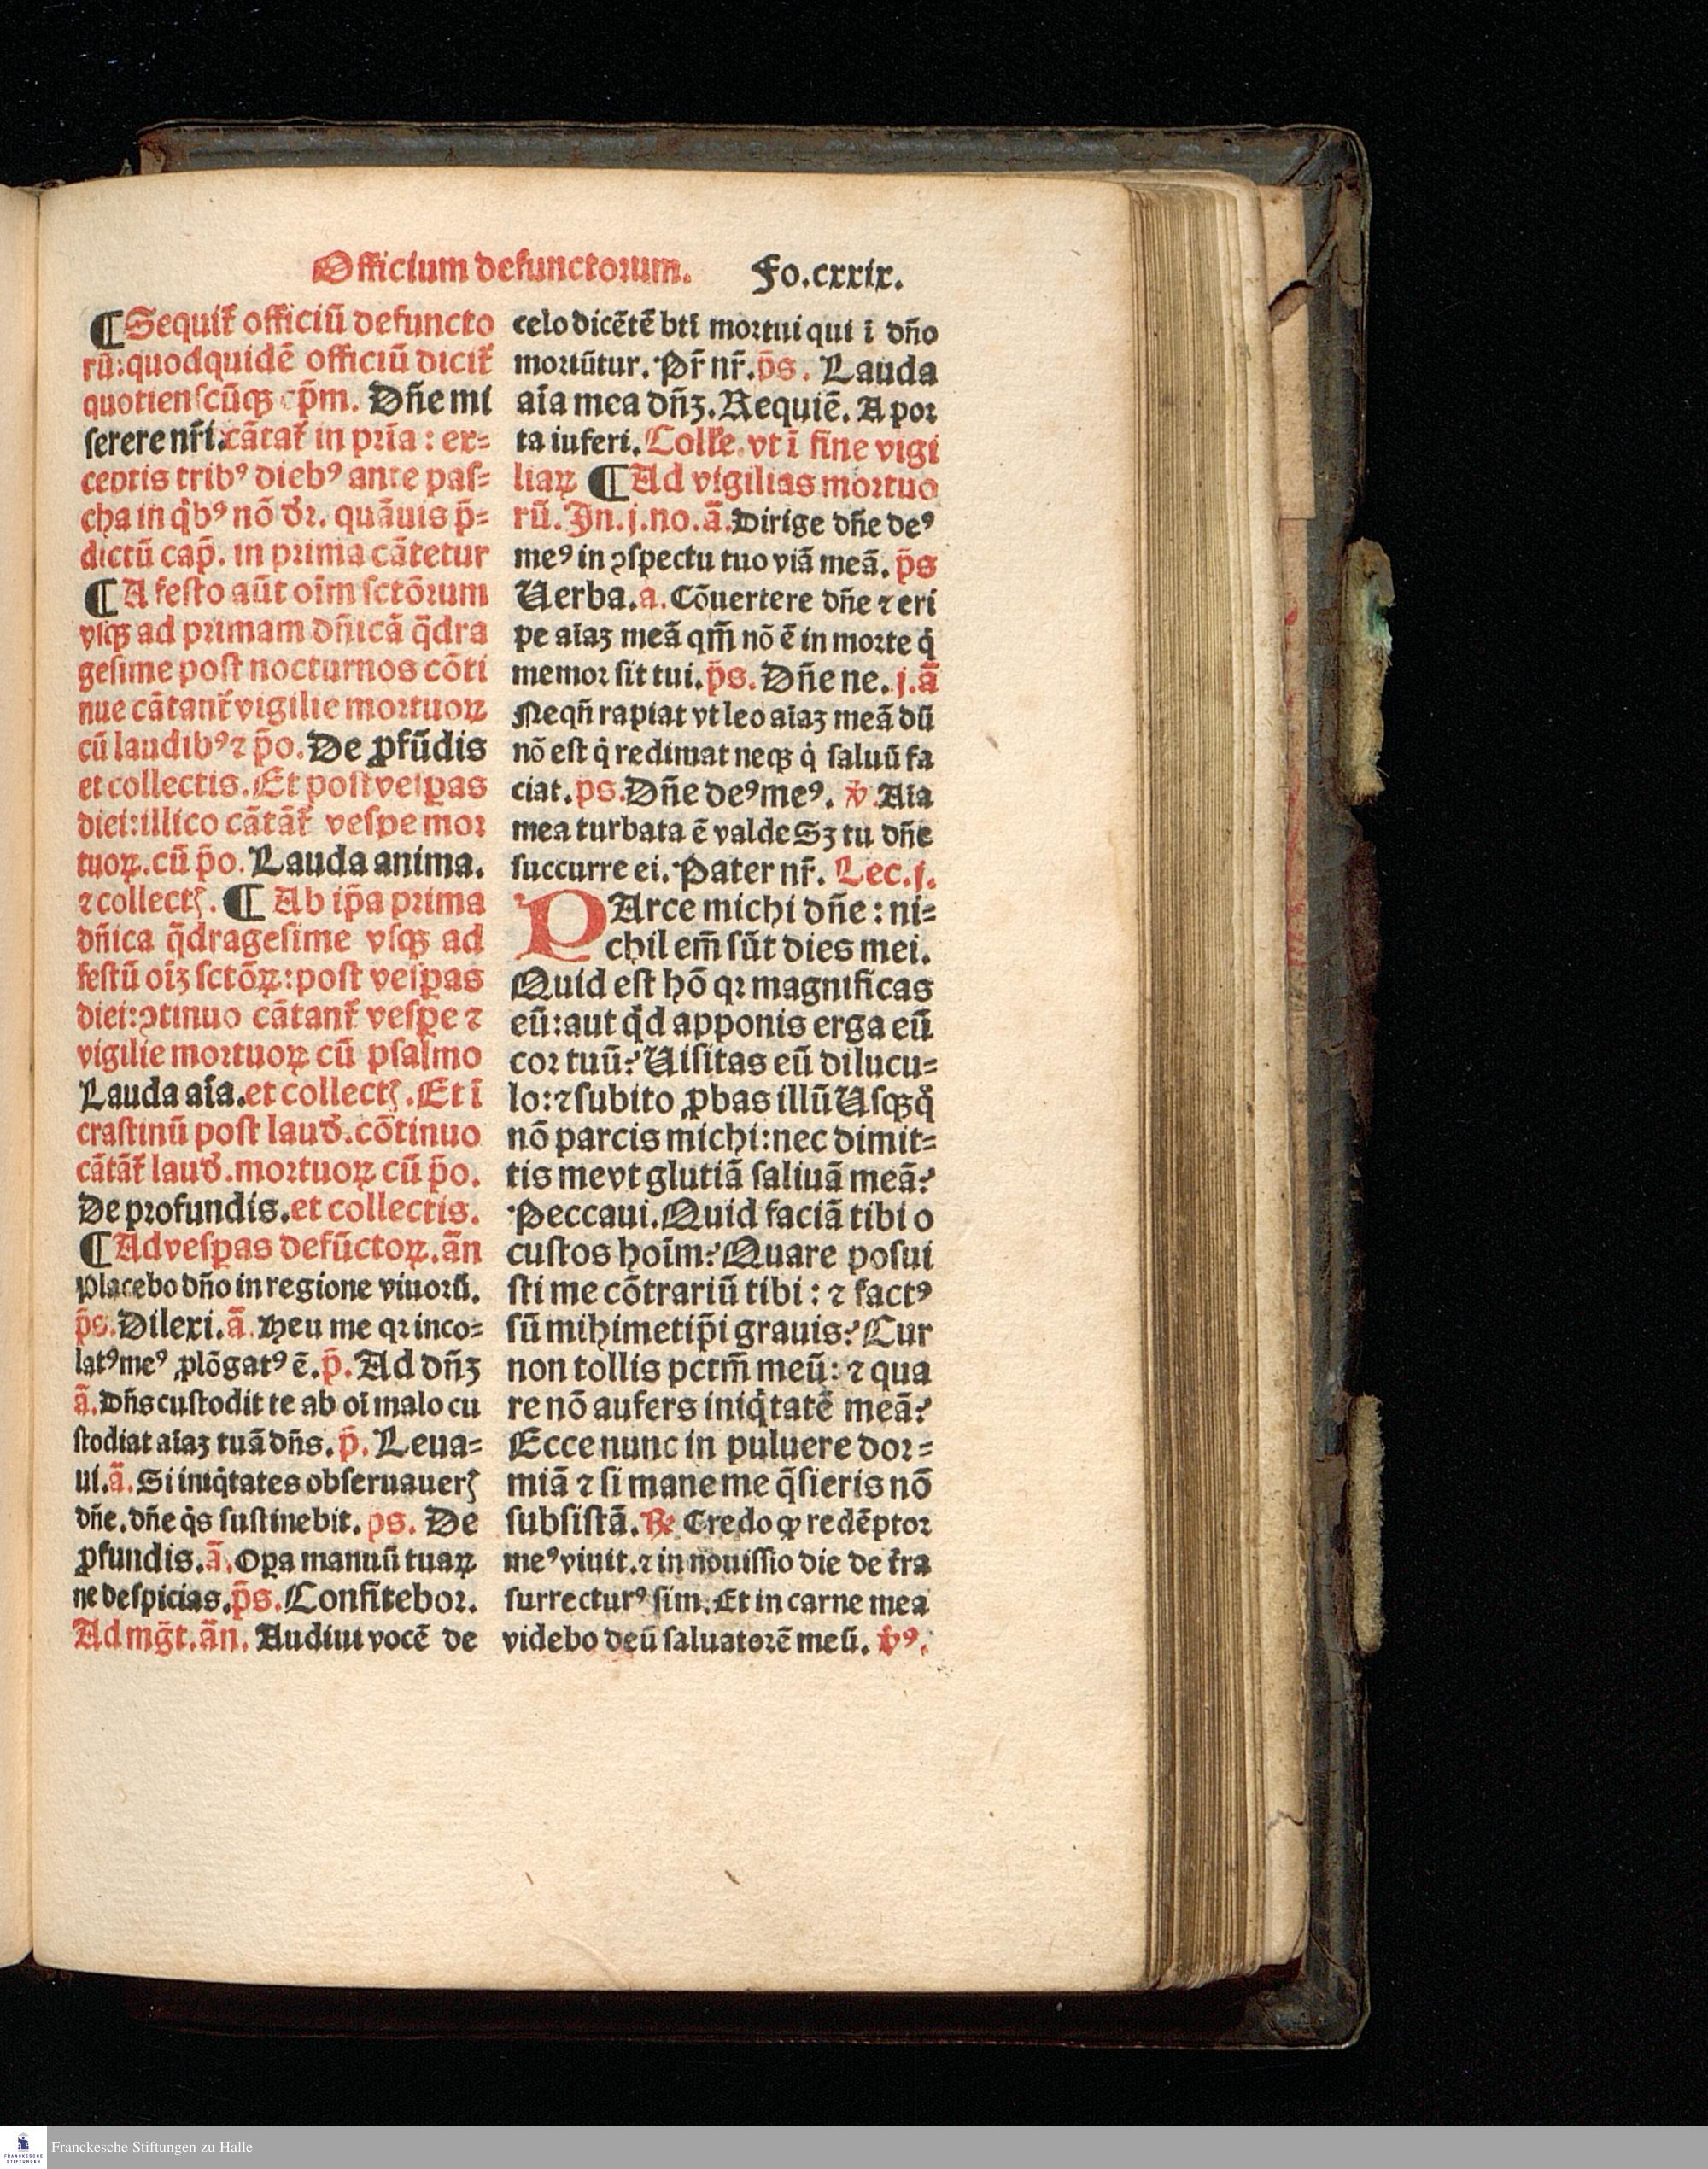 Officium defunctorum. Fo.cxxix.
¶ Sequit̃ officiū defuncto
rū: quodquidē officiū dicit̃
quotienscūqꝫ cp̄m. Dn̄e mi
serere nr̄i. cātat̃ in pr̄ia: ex⸗
ceptis tribꝰ diebꝰ ante pas⸗
cha in qͥbꝰ nō dꝛ. quāuis p̄⸗
dictū cap̄. in prima cātetur
¶ A festo aūt oīm sctōꝛum
vsqꝫ ad primam dn̄icā q̄dra
gesime post nocturnos cōti
nue cātant̃ vigilie moꝛtuoꝝ
cū laudibꝰ ⁊ p̄o. De ꝓfūdis
et collectis. Et post vesꝑas
diei: illico cātāt̃ vesꝑe moꝛ
tuoꝝ. cū p̄o. Lauda anima.
⁊ collectꝭ. ¶ Ab ip̄a prima
dn̄ica q̄dragesime vsqꝫ ad
festū oīꝫ sctōꝝ: post vesꝑas
diei: ꝯtinuo cātant̃ vesꝑe ⁊
vigilie moꝛtuoꝝ cū psalmo
Lauda aīa. et collectꝭ. Et ī
crastinū post laud̓. cōtinuo
cātāt̃ laud̓. moꝛtuoꝝ cū p̄o.
De pꝛofundis. et collectis.
¶ Ad vesꝑas defūctoꝝ. ān
Placebo dn̄o in regione viuoꝛū.
p̄s. Dilexi. ā. Heu me qꝛ inco⸗
latꝰ meꝰ ꝓlōgatꝰ ē. p̄. Ad dn̄ꝫ
ā. Dn̄s custodit te ab oī malo cu
stodiat aīaꝫ tuā dn̄s. p̄. Leua⸗
ui. ā. Si iniqͥtates obseruauerꝭ
dn̄e. dn̄e qͥs sustinebit. ps. De
ꝓfundis. ā. Oꝑa manuū tuaꝝ
ne despicias. p̄s. Confiteboꝛ.
Ad mḡt. ān. Audiui vocē de
celo dicētē bt̄i moꝛtui qui ī dn̄o
moꝛiūtur. Pr̄ nr̄. p̄s. Lauda
aīa mea dn̄ꝫ. Requiē. A poꝛ
ta inferi. Coll̄e. vt ī fine vigi
liaꝝ ¶ Ad vigilias moꝛtuo
rū. In. j. no. ā. Dirige dn̄e deꝰ
meꝰ in ꝯspectu tuo viā meā. p̄s
Uerba. a. Cōuertere dn̄e ⁊ eri
pe aīaꝫ meā qm̄ nō ē in moꝛte qͥ
memoꝛ sit tui. p̄s. Dn̄e ne. j. ā
Neqn̄ rapiat vt leo aīaꝫ meā dū
nō est qͥ redimat neqꝫ qͥ saluū fa
ciat. ps. Dn̄e deꝰ meꝰ. ℣. Aīa
mea turbata ē valde Sꝫ tu dn̄e
succurre ei. Pater nr̄. Lec. j.
PArce michi dn̄e: ni⸗
chil em̄ sūt dies mei.
Quid est hō qꝛ magnificas
eū: aut qͥd apponis erga eū
coꝛ tuū? Uisitas eū dilucu⸗
lo: ⁊ subito ꝓbas illū Usqꝫ qͦ
nō parcis michi: nec dimit⸗
tis me vt glutiā saliuā meā?
Peccaui. Quid faciā tibi o
custos hoīm? Quare posui
sti me cōtrariū tibi: ⁊ factꝰ
sū mihimetip̄i grauis? Cur
non tollis pctm̄ meū: ⁊ qua
re nō aufers iniqͥtatē meā?
Ecce nunc in puluere doꝛ⸗
miā ⁊ si mane me q̄sieris nō
subsistā. ℞ Credo ꝙ redēptoꝛ
meꝰ viuit. ⁊ in nouissio die de t̃ra
surrecturꝰ sim. Et in carne mea
videbo deū saluatoꝛē meū. ℣ꝰ.
Franckesche Stiftungen zu Halle
FRANCKESCHE
STIFTUNGEN